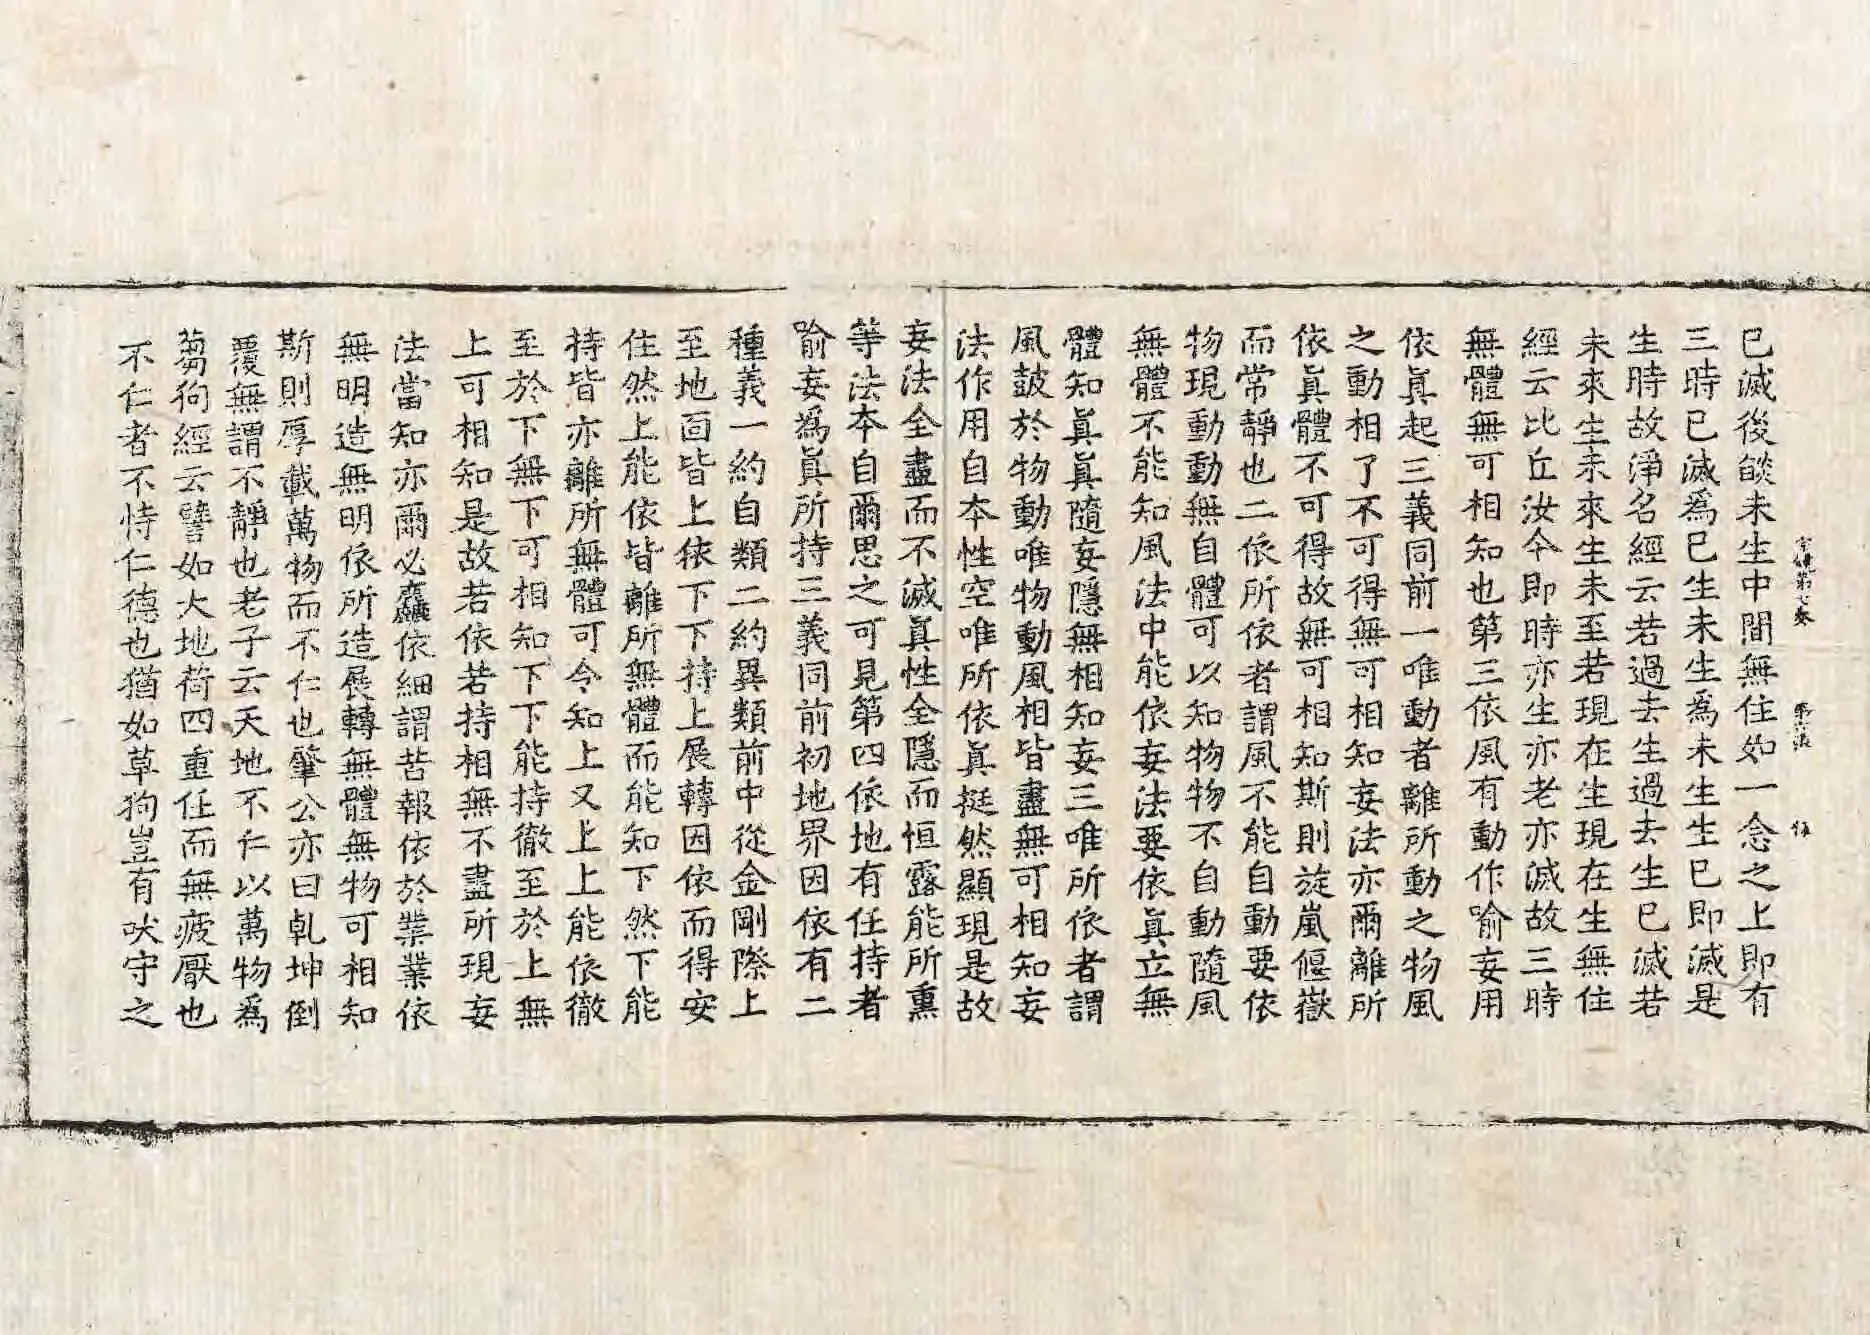 已滅後燄未生中間無住如一念之上即有
三時已滅爲已生未生爲未生生已即滅是
生時故淨名經云若過去生過去生已滅若
未來生未來生未至若現在生現在生無住
經云比丘汝今即時亦生亦老亦滅故三時
無體無可相知也第三依風有動作喻妄用
依眞起三義同前一唯動者離所動之物風
之動相了不可得無可相知妄法亦爾離所
依眞體不可得故無可相知斯則旋嵐偃嶽
而常靜也二依所依者謂風不能自動要依
物現動動無自體可以知物物不自動隨風
無體不能知風法中能依妄法要依眞立無
體知眞眞隨妄隱無相知妄三唯所依者謂
風鼓於物動唯物動風相皆盡無可相知妄
法作用自本性空唯所依眞挺然顯現是故
妄法全盡而不滅眞性全隱而恒露能所熏
等法本自爾思之可見第四依地有任持者
喻妄爲眞所持三義同前初地界因依有二
種義一約自類二約異類前中從金剛際上
至地面皆上依下下持上展轉因依而得安
住然上能依皆離所無體而能知下然下能
持皆亦離所無體可令知上又上上能依徹
至於下無下可相知下下能持徹至於上無
上可相知是故若依若持相無不盡所現妄
法當知亦爾必麤依細謂苦報依於業業依
無明造無明依所造展轉無體無物可相知
斯則厚載萬物而不仁也肇公亦曰乹坤倒
覆無謂不靜也老子云天地不仁以萬物爲
芻狗經云譬如大地荷四重任而無疲厭也
不仁者不恃仁德也猶如草狗豈有吠守之